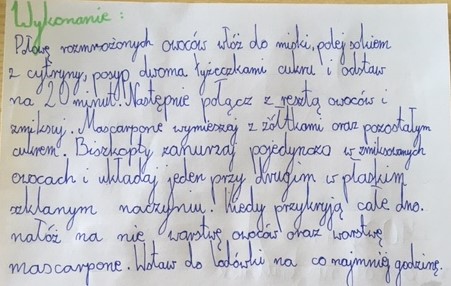 Wykonanie:
Połowę rozmrożonych owoców włóż do miski, polej sokiem
z cytryny, posyp dwoma łyżeczkami cukru i odstaw
na 20 minut. Następnie połącz z resztą owoców i
zmiksuj. Mascarpone wymieszaj z żółtkami oraz pozostałym
cukrem. Biszkopty zanurzaj pojedynczo w zmiksowanych
owocach i układaj jeden przy drugim w płaskim
szklanym naczyniu. Kiedy przykryją całe dno.
nałóż na nie warstwę owoców oraz warstwę
mascarpone. Wstaw do lodówki na co najmniej godzinę.